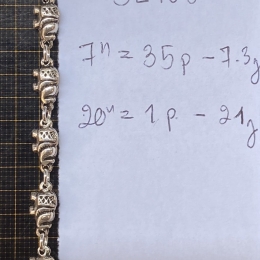 7ⁿ = 35p - 7.3g
20ⁿ = 1p - 21g